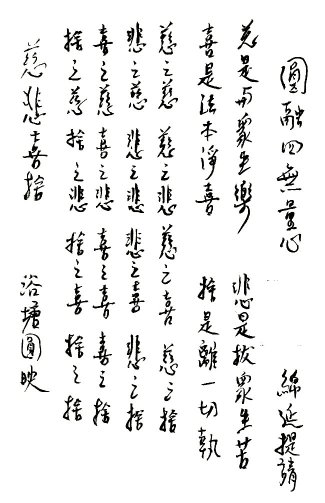 圓融四無量心 綿延提請
慈是与眾生樂 悲是拔眾生苦
喜是法本淨喜 捨是離一切執
慈之慈 慈之悲 慈之喜 慈之捨
悲之慈 悲之悲 悲之喜 悲之捨
喜之慈 喜之悲 喜之喜 喜之捨
捨之慈 捨之悲 捨之喜 捨之捨
慈悲喜捨 浴塘圓映